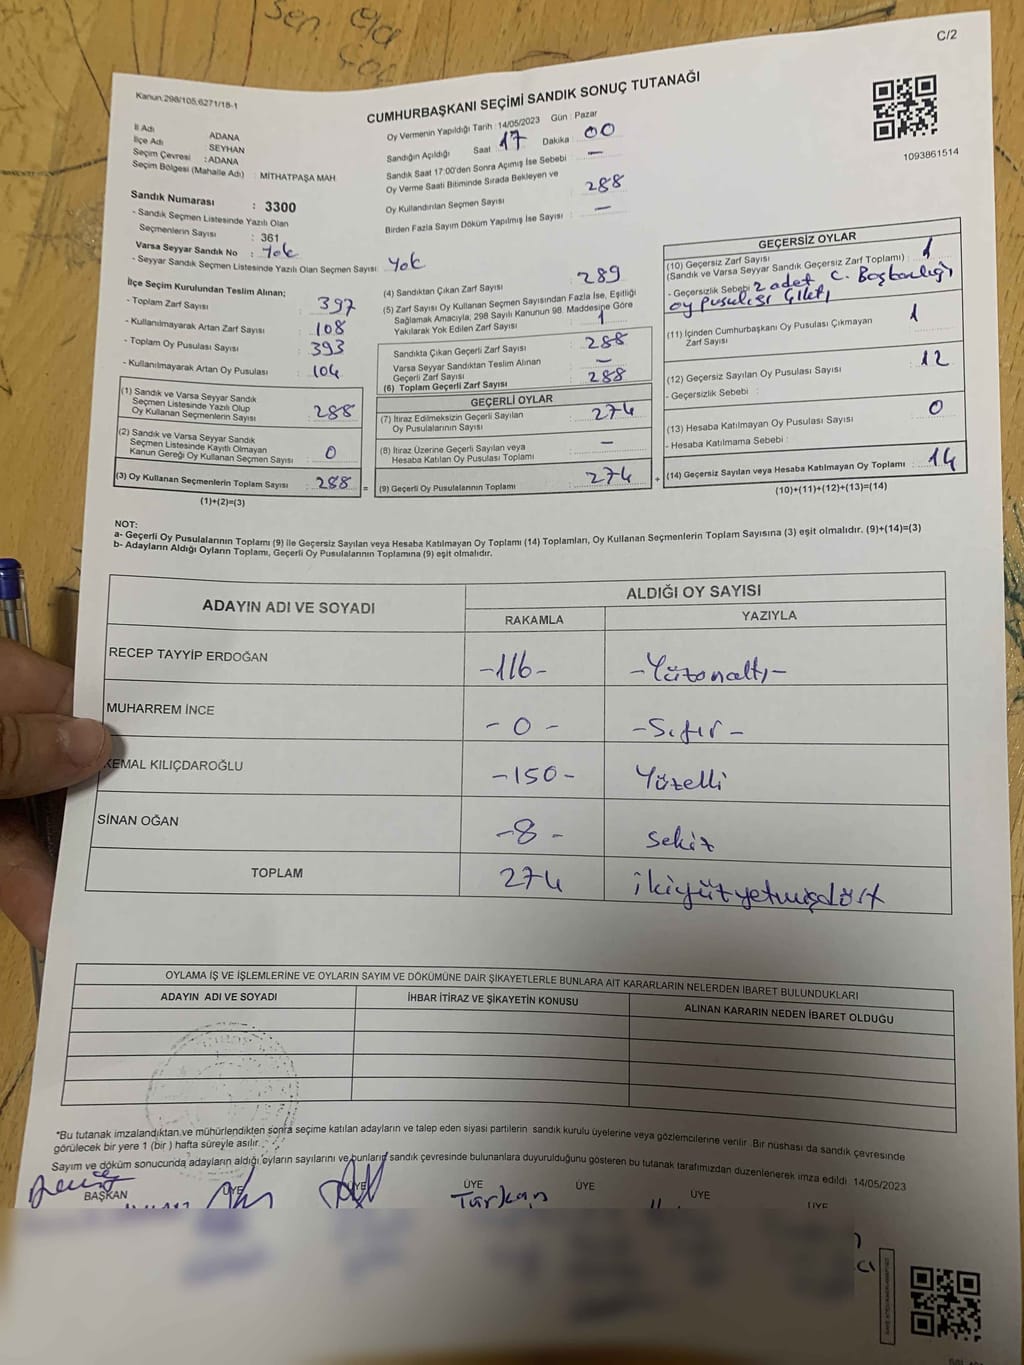 Sen. Ela
C/2
Kanun:298/105,6271/18-1
CUMHURBAŞKANI SEÇİMİ SANDIK SONUÇ TUTANAĞI
İl Adı ADANA
İlçe Adı SEYHAN
Seçim Çevresi :ADANA
Seçim Bölgesi (Mahalle Adı) : MİTHATPAŞA MAH
Oy Vermenin Yapıldığı Tarih : 14/05/2023 Gün : Pazar
Sandığın Açıldığı Saat 17 Dakika : 00
Sandık Saat 17:00'den Sonra Açımış İse Sebebi –
Oy Verme Saati Bitiminde Sırada Bekleyen ve
Oy Kullandırılan Seçmen Sayısı : 288
Birden Fazla Sayım Döküm Yapılmış İse Sayısı : –
1093861514
Sandık Numarası : 3300
- Sandık Seçmen Listesinde Yazılı Olan
Seçmenlerin Sayısı : 361
Varsa Seyyar Sandık No : Yok
- Seyyar Sandık Seçmen Listesinde Yazılı Olan Seçmen Sayısı: Yok
İlçe Seçim Kurulundan Teslim Alınan;
- Toplam Zarf Sayısı : 397
- Kullanılmayarak Artan Zarf Sayısı : 108
- Toplam Oy Pusulası Sayısı : 393
- Kullanılmayarak Artan Oy Pusulası : 104
(1) Sandık ve Varsa Seyyar Sandık
Seçmen Listesinde Yazılı Olup
Oy Kullanan Seçmenlerin Sayısı : 288
(2) Sandık ve Varsa Seyyar Sandık
Seçmen Listesinde Kayıtlı Olmayan
Kanun Gereği Oy Kullanan Seçmen Sayısı : 0
(3) Oy Kullanan Seçmenlerin Toplam Sayısı : 288 =
(1)+(2)=(3)
(4) Sandıktan Çıkan Zarf Sayısı : 289
(5) Zarf Sayısı Oy Kullanan Seçmen Sayısından Fazla İse, Eşitliği
Sağlamak Amacıyla, 298 Sayılı Kanunun 98. Maddesine Göre
Yakılarak Yok Edilen Zarf Sayısı : 1
Sandıkta Çıkan Geçerli Zarf Sayısı : 288
Varsa Seyyar Sandıktan Teslim Alınan
Geçerli Zarf Sayısı : –
(6) Toplam Geçerli Zarf Sayısı : 288
GEÇERLİ OYLAR
(7) İtiraz Edilmeksizin Geçerli Sayılan
Oy Pusulalarının Sayısı : 274
(8) İtiraz Üzerine Geçerli Sayılan veya
Hesaba Katılan Oy Pusulası Toplamı : –
(9) Geçerli Oy Pusulalarının Toplamı : 274 +
GEÇERSİZ OYLAR
(10) Geçersiz Zarf Sayısı
(Sandık ve Varsa Seyyar Sandık Geçersiz Zarf Toplamı) : 1
- Geçersizlik Sebebi: 2 adet C. Başkanlığı
oy pusulası çıktı
(11) İçinden Cumhurbaşkanı Oy Pusulası Çıkmayan
Zarf Sayısı : 1
(12) Geçersiz Sayılan Oy Pusulası Sayısı : 12
- Geçersizlik Sebebi :
(13) Hesaba Katılmayan Oy Pusulası Sayısı : 0
- Hesaba Katılmama Sebebi :
(14) Geçersiz Sayılan veya Hesaba Katılmayan Oy Toplamı : 14
(10)+(11)+(12)+(13)=(14)
NOT:
a- Geçerli Oy Pusulalarının Toplamı (9) ile Geçersiz Sayılan veya Hesaba Katılmayan Oy Toplamı (14) Toplamları, Oy Kullanan Seçmenlerin Toplam Sayısına (3) eşit olmalıdır. (9)+(14)=(3)
b- Adayların Aldığı Oyların Toplamı, Geçerli Oy Pusulalarının Toplamına (9) eşit olmalıdır.
ADAYIN ADI VE SOYADI
ALDIĞI OY SAYISI
RAKAMLA YAZIYLA
RECEP TAYYİP ERDOĞAN -116- -Yüzonaltı-
MUHARREM İNCE -0- -Sıfır-
KEMAL KILIÇDAROĞLU -150- Yüzelli
SİNAN OĞAN -8- sekiz
TOPLAM 274 ikiyüzyetmişdört
OYLAMA İŞ VE İŞLEMLERİNE VE OYLARIN SAYIM VE DÖKÜMÜNE DAİR ŞİKAYETLERLE BUNLARA AİT KARARLARIN NELERDEN İBARET BULUNDUKLARI
ADAYIN ADI VE SOYADI İHBAR İTİRAZ VE ŞİKAYETİN KONUSU ALINAN KARARIN NEDEN İBARET OLDUĞU
*Bu tutanak imzalandıktan ve mühürlendikten sonra seçime katılan adayların ve talep eden siyasi partilerin sandık kurulu üyelerine veya gözlemcilerine verilir. Bir nüshası da sandık çevresinde
görülecek bir yere 1 (bir ) hafta süreyle asılır.
Sayım ve döküm sonucunda adayların aldığı oyların sayılarını ve bunların sandık çevresinde bulunanlara duyurulduğunu gösteren bu tutanak tarafımızdan düzenlenerek imza edildi. 14/05/2023
BAŞKAN ÜYE ÜYE ÜYE ÜYE ÜYE ÜYE
Türkan